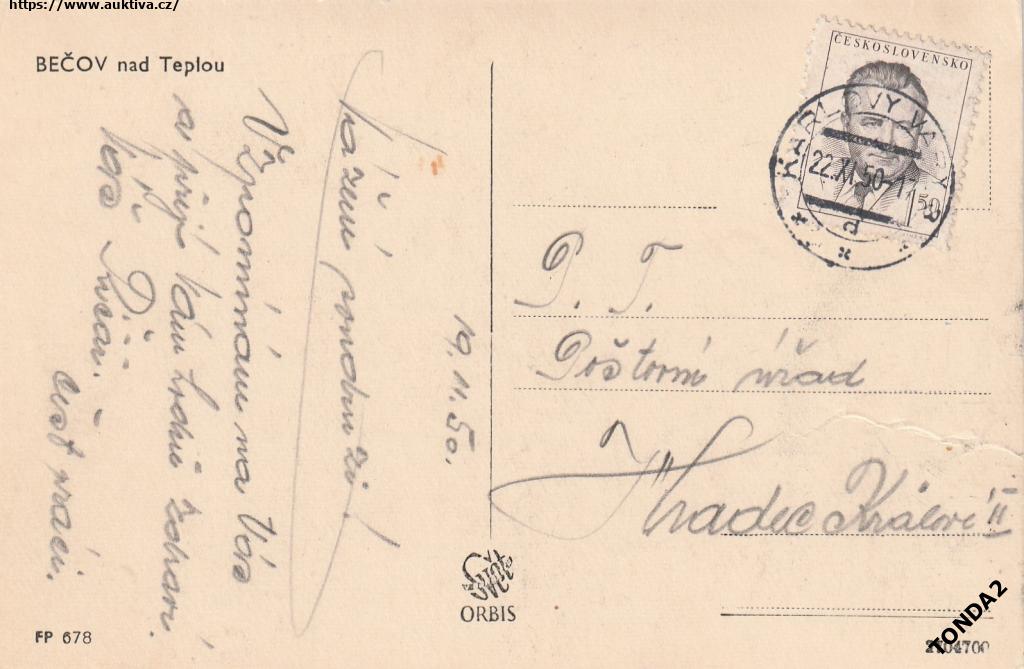 https://www.auktiva.cz/
BEČOV nad Teplou
ČESKOSLOVENSKO
KARLOVY VARY
22.XI.50-11
1,50
19.11.50.
Vážení soudruzi!
Vzpomínám na Vás
a přeji Vám hodně zdraví.
Váš
Čest práci.
P. T.
Poštovní úřad
Hradec Králové II
ORBIS
FP 678
TONDA2